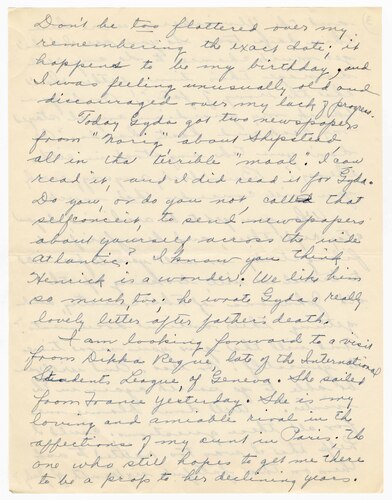 Don't be too flattered over my
remembering the exact date; it
happens to be my birthday, and
I was feeling unusually old and
discouraged over my lack of progress.
Today Gyda got two newspapers
from "Norig", about Shipstead,
all in that terrible "maal". I can
read it, and I did read it for Gyda.
Do you, or do you not, call that
selfconceit to send newspapers
about yourself across the wide
Atlantic? I know you think
Henrick is a wonder. We like him
so much, too; he wrote Gyda a really
lovely letter after father's death.
I am looking forward to a visit
from Dikka Reque, late of the International
Students League of Geneva. She sailed
from France yesterday. She is my
loving and amiable rival in the
affections of my aunt in Paris, the
one who still hopes to get me there
to be a prop to her declining years.